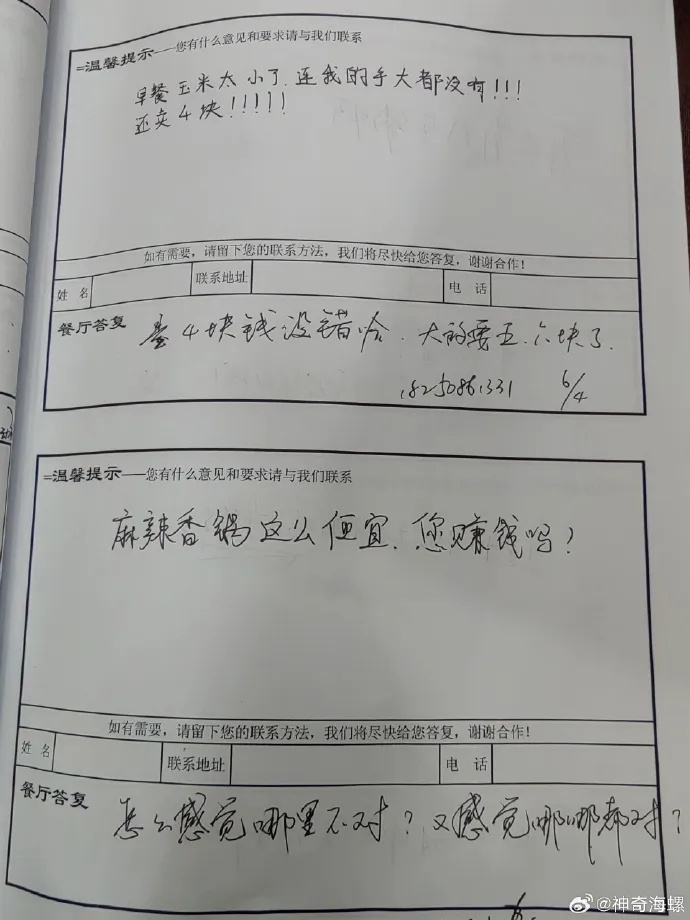 =温馨提示——您有什么意见和要求请与我们联系
早餐 玉米太小了.连我的手大都没有!!!
还卖4块!!!!!
如有需要，请留下您的联系方法，我们将尽快给您答复，谢谢合作！
姓 名 联系地址 电 话
餐厅答复 4块钱没错哈.大的要五.六块了.
18250861331 6/4
=温馨提示——您有什么意见和要求请与我们联系
麻辣香锅这么便宜.您赚钱吗?
如有需要，请留下您的联系方法，我们将尽快给您答复，谢谢合作！
姓 名 联系地址 电 话
餐厅答复 怎么感觉哪里不对?又感觉哪哪都对?
@神奇海螺